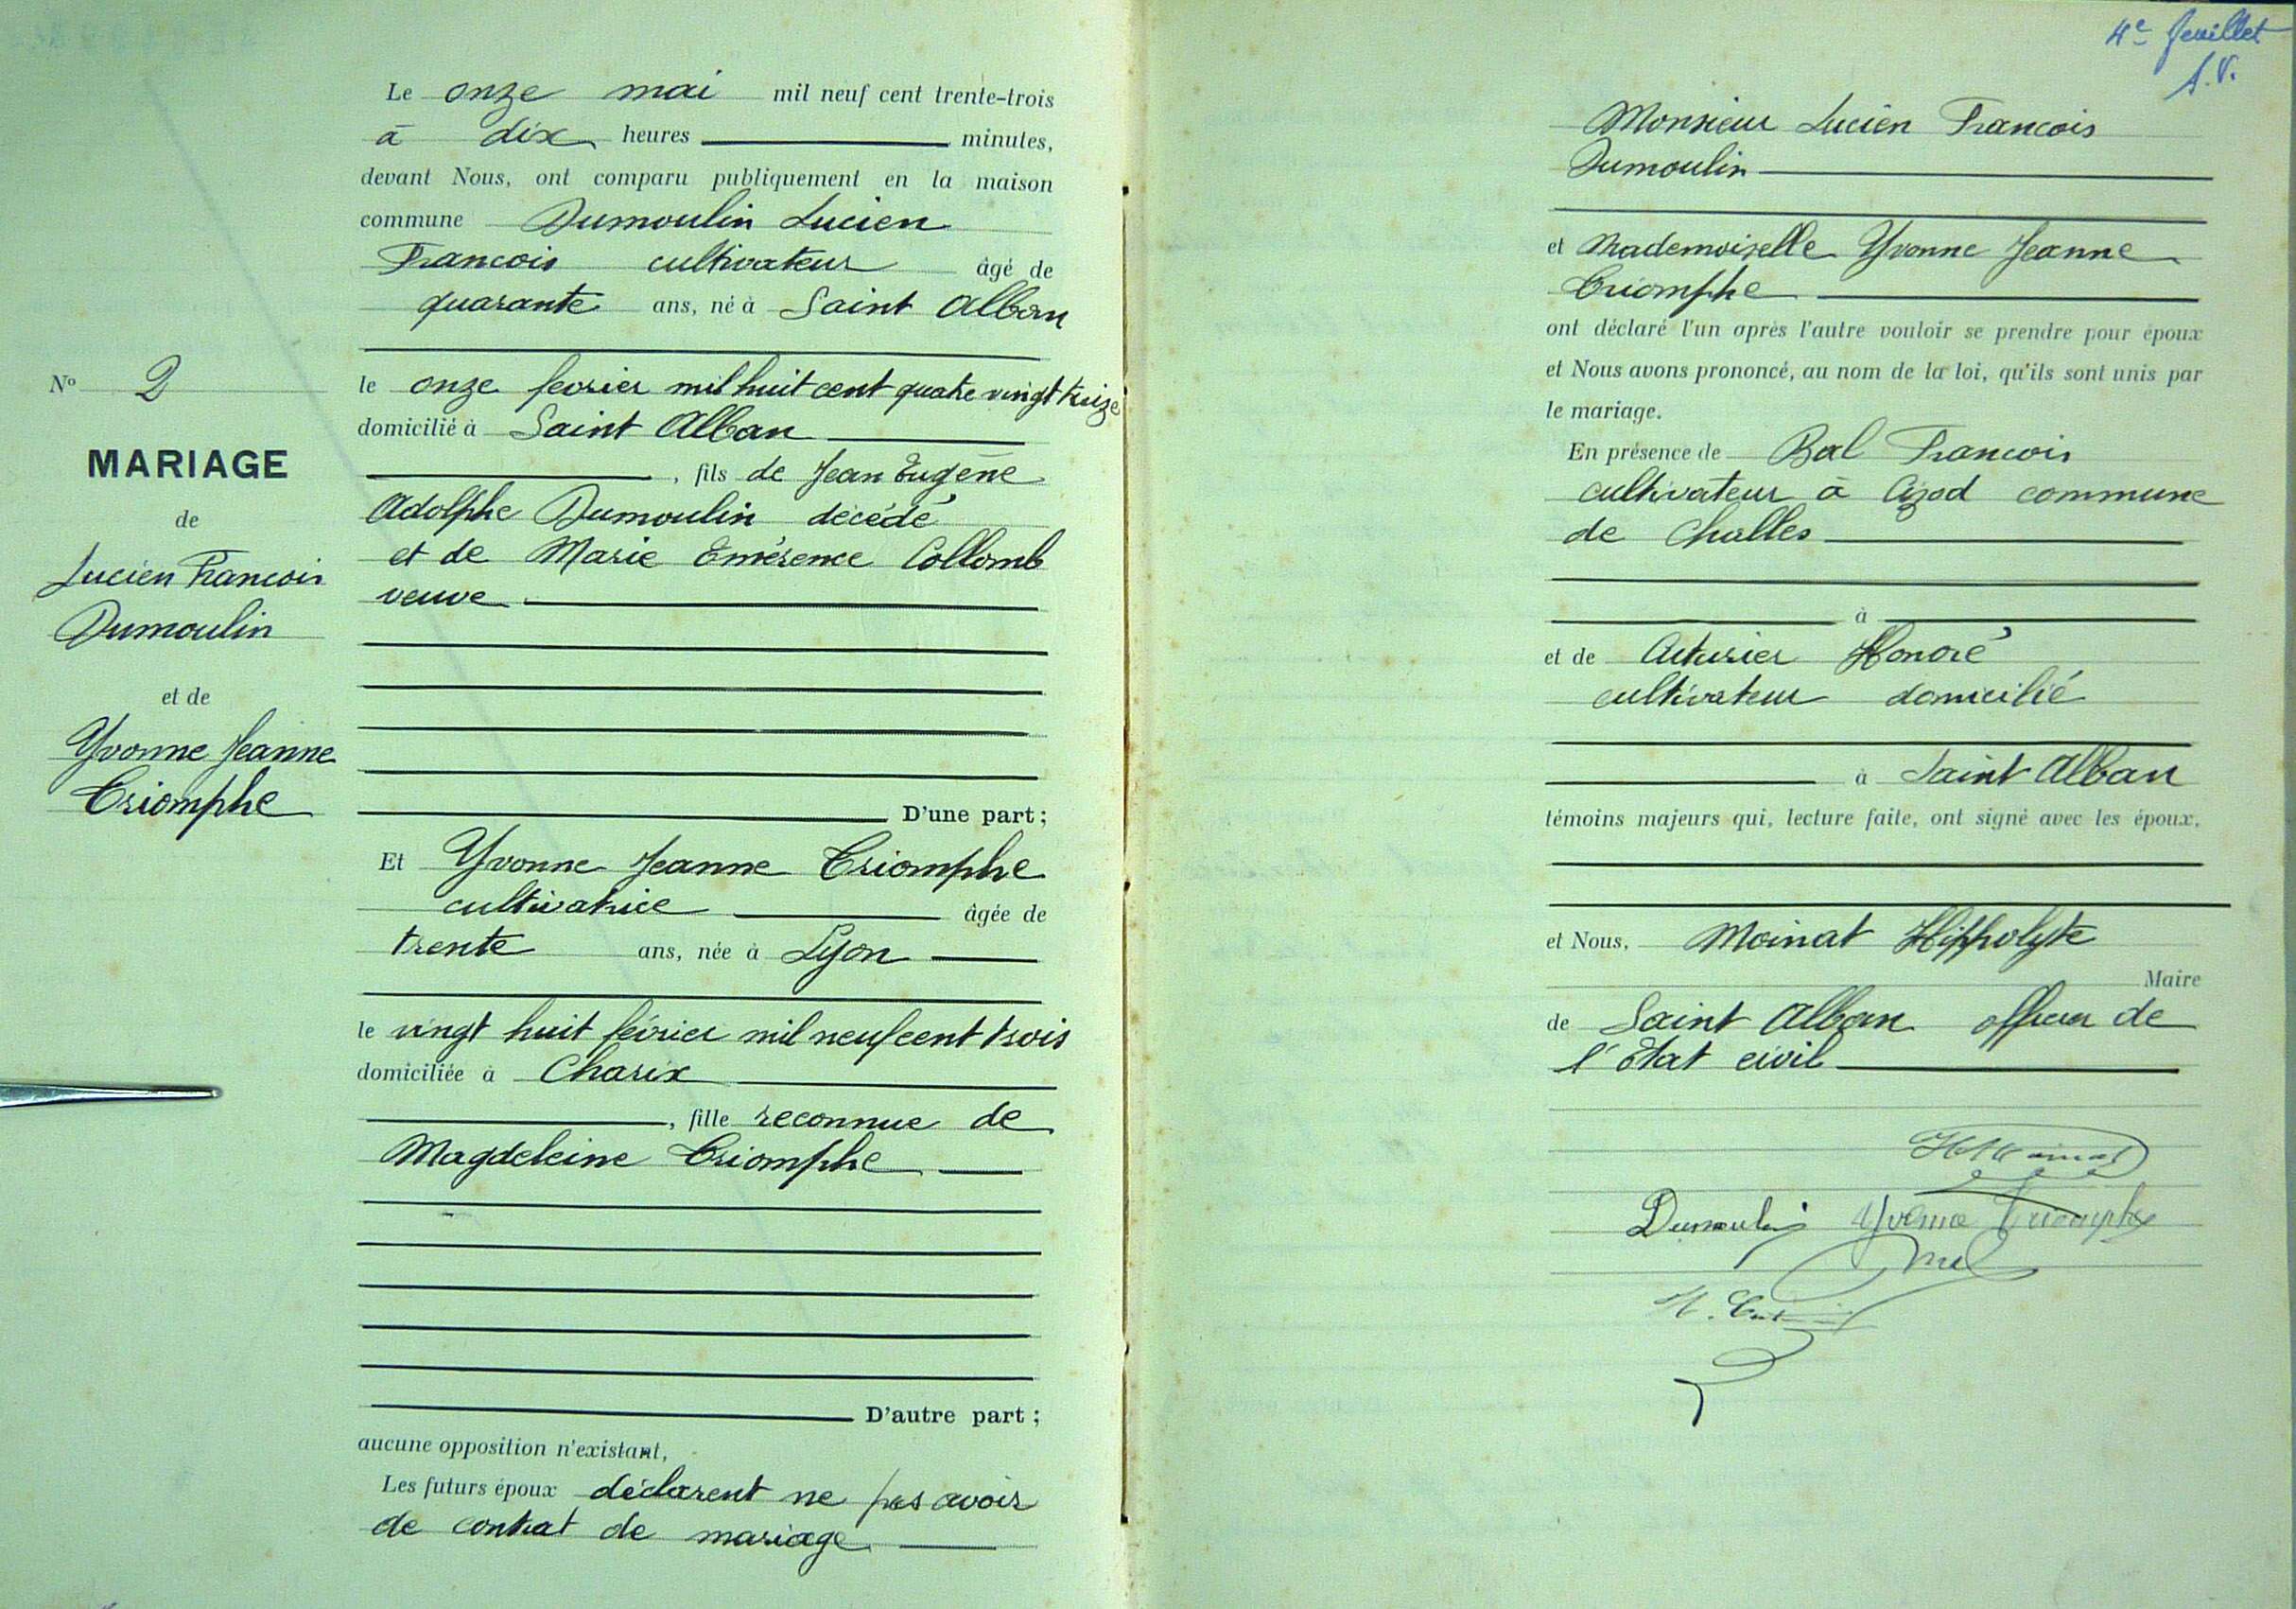 N° 2
MARIAGE
de
Lucien Francois
Dumoulin
et de
Yvonne Jeanne
Triomphe
Le onze mai mil neuf cent trente-trois
à dix heures minutes,
devant Nous, ont comparu publiquement en la maison
commune Dumoulin Lucien
Francois cultivateur âgé de
quarante ans, né à Saint Alban
le onze fevrier mil huit cent quatre vingt treize
domicilié à Saint Alban
, fils de Jean Eugène
Adolphe Dumoulin décédé
et de Marie Emérence Collomb
veuve
D'une part ;
Et Yvonne Jeanne Triomphe
cultivatrice âgée de
trente ans, née à Lyon
le vingt huit février mil neuf cent trois
domiciliée à Charix
, fille reconnue de
Magdeleine Triomphe
D'autre part ;
aucune opposition n'existant,
Les futurs époux déclarent ne pas avoir
de contrat de mariage
4e feuillet
Monsieur Lucien Francois
Dumoulin
et Mademoiselle Yvonne Jeanne
Triomphe
ont déclaré l'un après l'autre vouloir se prendre pour époux
et Nous avons prononcé, au nom de la loi, qu'ils sont unis par
le mariage.
En présence de Bal Francois
cultivateur à Cizod commune
de Challes
à
et de Honoré
cultivateur domicilié
à Saint Alban
témoins majeurs qui, lecture faite, ont signé avec les époux,
et Nous, Moinat Hippolyte
Maire
de Saint Alban officier de
l'Etat civil
H Moinat
Dumoulin Yvonne Triomphe